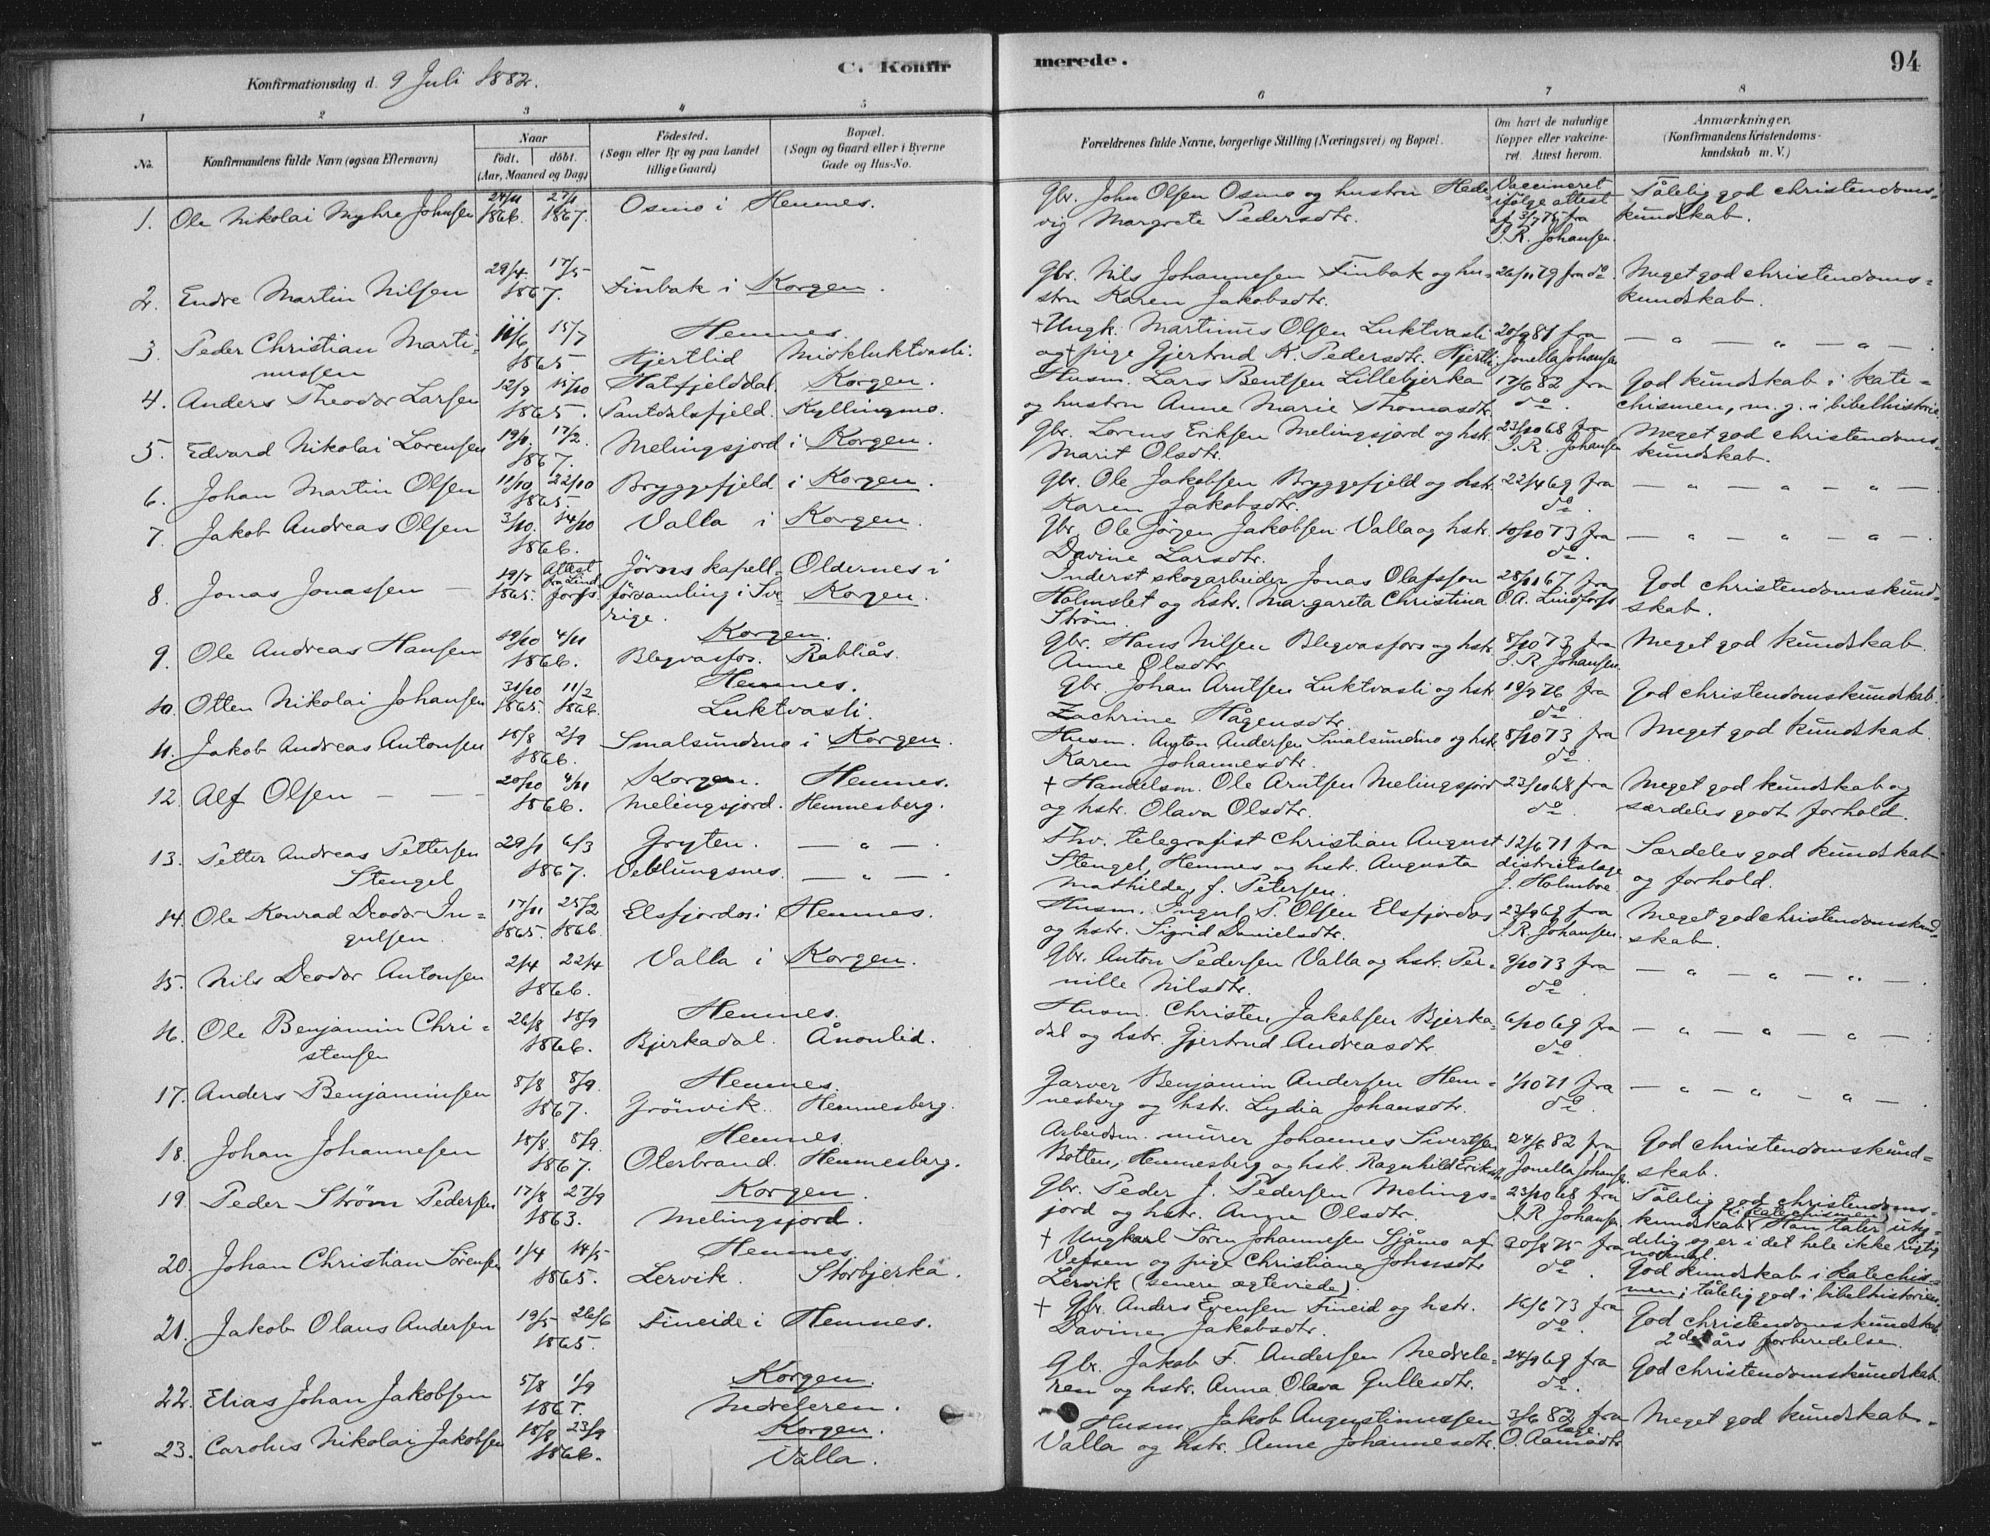 C. Konfirmerede. 94
Konfirmationsdag d. 9 Juli 1882.
1 2 3 4 5 6 7 8
No. Konfirmandens fulde Navn (ogsaa Efternavn) Naar født. døbt. (Aar, Maaned og Dag) Fødested. (Sogn eller By og paa Landet tillige Gaard) Bopæl. (Sogn og Gaard eller i Byerne Gade og Hus-No. Forældrenes fulde Navne, borgerlige Stilling (Næringsvei) og Bopæl. Om havt de naturlige Kopper eller vakcineret. Attest herom. Anmærkninger. (Konfirmandens Kristendomskundskab m. V.)
1. Ole Nikolai Myhre Johnsen 24/11 1866. 27/1 1867. Osmo i Hemnes. Gbr. John Olsen Osmo og hustru Hedevig Margrete Pedersdtr. Vaccineret ifølge attest af 3/7 75 fra J. R. Johansen. Tålelig god christendomskundskab.
2. Endre Martin Nilsen 29/4. 17/5 1867. Finbak i Korgen. Gbr. Nils Johannesen Finbak og hustru Karen Jakobsdtr. 26/11 79 fra do Meget god christendomskundskab.
3. Peder Christian Martinussen 11/6 15/7 1865 Hemnes. Hjertlid Midtluktvasli. + Ungk. Martinus Olsen Luktvasli og + pige Gjertrud K. Pedersdtr. Hjertli. 20/9 81 fra Jonella Johansen — „ — „ — „ —
4. Anders Theodor Larsen 12/9 15/10 1865. Hatfjelddal. Pantdalsfjeld. Korgen. Kyllingmo. Husm. Lars Bentsen Lillebjerka og hustru Anne Marie Thomasdtr. 17/6 82 fra do. God kundskab i katechismen, m. g. i bibelhistorie.
5. Edvard Nikolai Lorensen 19/1. 17/2. 1867. Melingsjord i Korgen. Gbr. Lorens Eriksen Melingsjord og hstr. Marit Olsdtr. 23/10 68 fra J. R. Johansen Meget god christendomskundskab.
6. Johan Martin Olsen 11/10 22/10 1865. Bryggefjeld i Korgen. Gbr. Ole Jakobsen Bryggefjeld og hstr. Karen Jakobsdtr. 22/4 69 fra do. — „ — „ — „ —
7. Jakob Andreas Olsen 3/10. 14/10 1866. Valla i Korgen. Gbr. Ole Jørgen Jakobsen Valla og hstr. Davine Larsdtr. 10/10 73 fra do. — „ — „ — „ —
8. Jonas Jonassen — 19/7 1865. Attest fra Lindforss Jörns kapellförsamling i Sverige. Oldernes i Korgen. Inderst skogarbeider Jonas Olafsson Holmslet og hstr. Margareta Christina Strøm. 28/11 67 fra O. A. Lindforss God christendomskundskab.
9. Ole Andreas Hansen 19/10 4/11 1866. Korgen. Blegvasfos. Rabliås. Gbr. Hans Nilsen Blegvasfors og hstr. Anne Olsdtr. 8/10 73 fra J. R. Johansen. Meget god kundskab.
10. Otten Nikolai Johansen 31/10 1865. 11/2 1866. Hemnes. Luktvasli. Gbr. Johan Arntsen Luktvasli og hstr. Zachrine Hågensdtr. 19/9 76 fra do. God christendomskundskab.
11. Jakob Andreas Antonsen 18/8 2/9 1866. Smalsundmo i Korgen. Husm. Anton Andersen Smalsundmo og hstr. Karen Johannesdtr. 8/10 73 fra do. Meget god kundskab.
12. Alf Olsen — — — 20/10 4/11 1866. Korgen. Melingsjord. Hemnes. Hemnesberg. + Handelsm. Ole Arntsen Melingsjord og hstr. Olava Olsdtr. 23/10 68 fra do. Meget god kundskab og særdeles godt forhold.
13. Petter Andreas Pettersen Stengel 29/1 6/3 1867. Gryten. Veblungsnes. — „ — . — „ — . Fhv. telegrafist Christian August Stengel, Hemnes og hstr. Augusta Mathilde, f. Petersen. 12/6 71 fra distriktslæge J. Holmboe. Særdeles god kundskab og forhold.
14. Ole Konrad Deodor Ingulsen. 17/11 1865. 25/2 1866. Elsfjordos i Hemnes. Husm. Ingul P. Olsen Elsfjordos og hstr. Sigrid Danielsdtr. 23/9 69 fra J. R. Johansen. Meget god christendomskundskab.
15. Nils Deodor Antonsen 2/4 22/4 1866. Valla i Korgen. Gbr. Anton Pedersen Valla og hstr. Pernille Nilsdtr. 9/10 73 fra do. — „ — „ — „ — .
16. Ole Benjamin Christensen 26/8 18/9 1866. Hemnes. Bjerkadal. Ånonlid. Husm. Christen Jakobsen Bjerkadal og hstr. Gjertrud Andreasdtr. 6/10 69 fra do. — „ — „ — „ —
17. Anders Benjaminsen 8/8 8/9. 1867. Hemnes. Grönvik. Hemnesberg. Garver Benjamin Andersen Hemnesberg og hstr. Lydia Johansdtr. 1/10 71 fra do. — „ — „ — „ — .
18. Johan Johannesen 18/8. 8/9. 1867. Hemnes. Oterbrand. Hemnesberg. Arbeidsm. murer Johannes Sivertsen Botten, Hemnesberg og hstr. Ragnhild Eriksd. 24/6 82 fra Jonella Johansen. God christendomskundskab.
19. Peder Strøm Pedersen 17/8 27/9 1863. Korgen. Melingsjord. Gbr. Peder J. Pedersen Melingsjord og hstr. Anne Olsdtr. 23/10 68 fra J. R. Johansen Tålelig god christendomskundskab (i katechismen). Han taler utydelig og er i det hele ikke rigtig normal.
20. Johan Christian Sørensen 1/4 14/5 1865. Hemnes. Lervik. Storbjerka. + Ungkarl Søren Johannesen Sjåmo af Vefsen og pige Christiane Johnsdtr Lervik (senere ægteviede). 30/8 75 fra do. God kundskab i katechismen; tålelig god i bibelhistorien.
21. Jakob Olaus Andersen 19/5 26/6 1865. Fineide i Hemnes. + Gbr. Anders Evensen Fineid og hstr. Davine Jakobsdtr. 16/6 73 fra do. God christendomskundskab. 2det års forberedelse.
22. Elias Johan Jakobsen 5/8 1/9 1867. Korgen. Nedreleren. Gbr. Jakob F. Andersen Nedreleren og hstr. Anna Olava Gullesdtr. 24/9 69 fra do. God christendomskundskab.
23. Carolus Nikolai Jakobsen 18/8. 23/9 1866. Korgen. Valla. Husm. Jakob Augustinussen Valla og hstr. Anne Johannesdtr. 3/6 82 fra læge O. Aamodtr. Meget god kundskab.